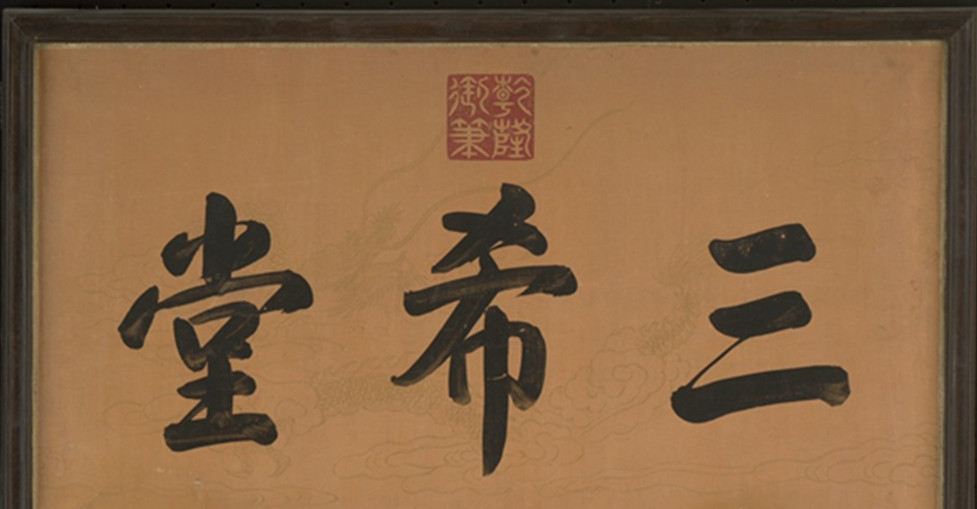 乾隆
御筆
三希堂